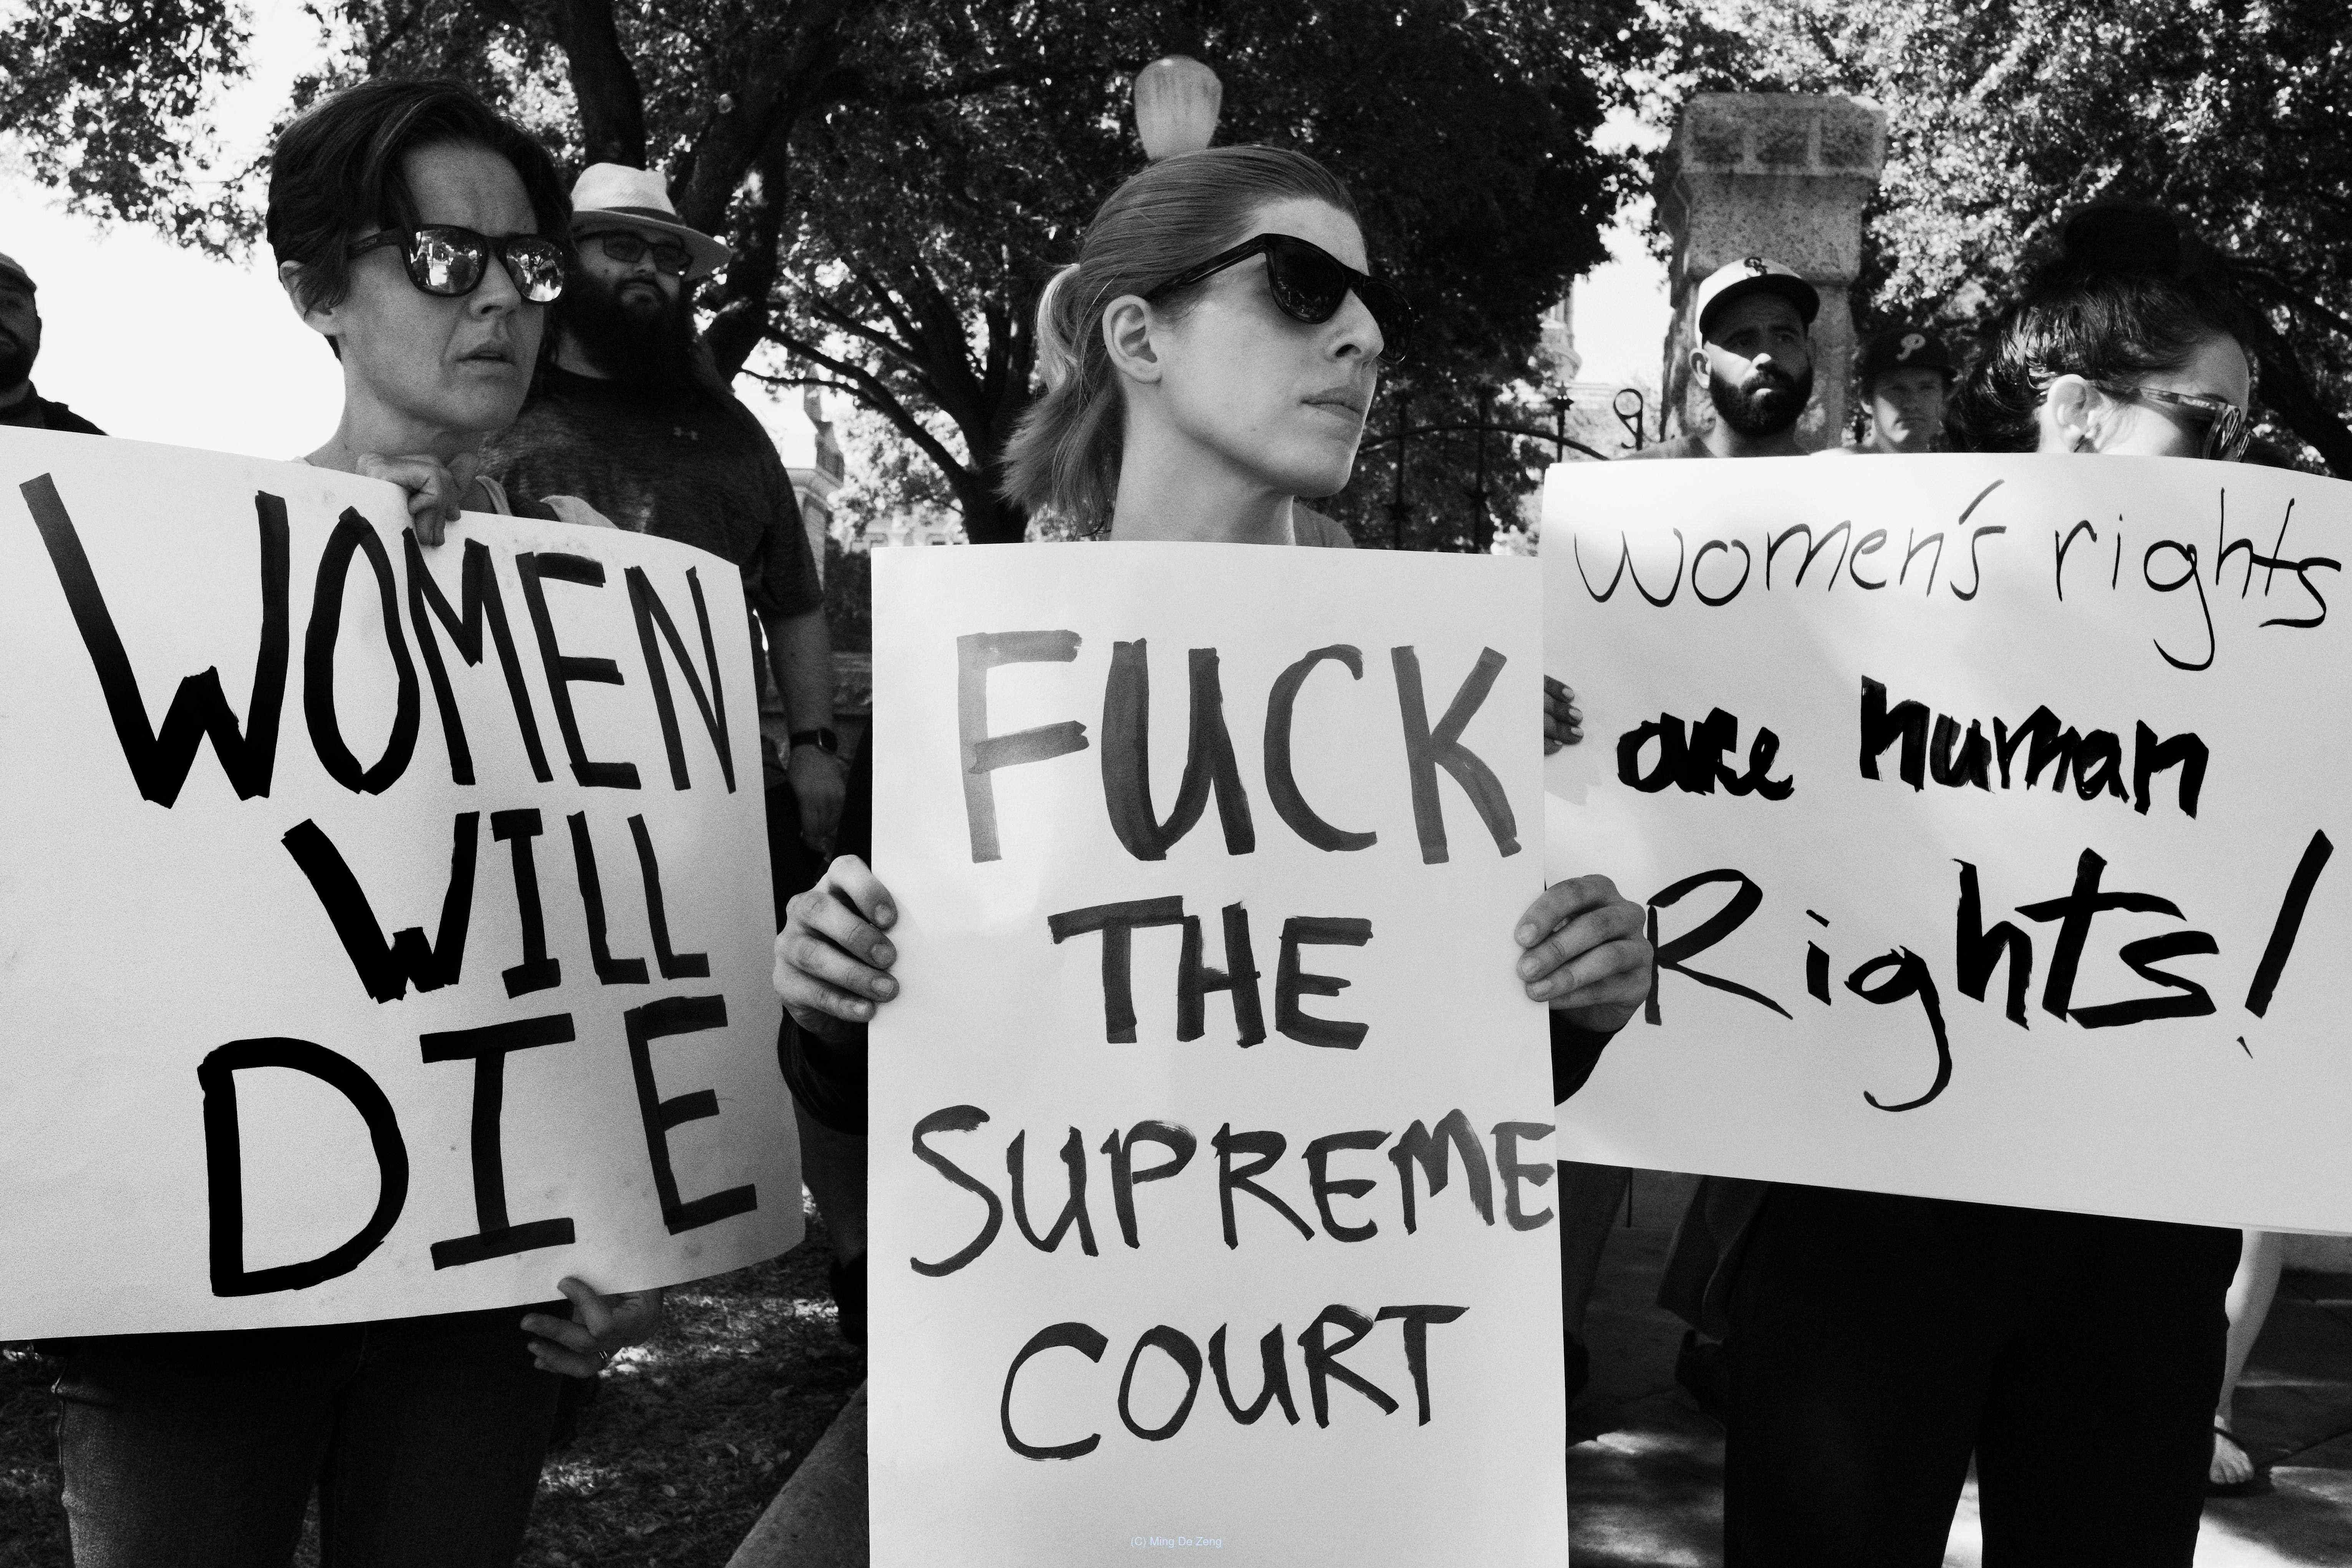 WOMEN
WILL
DIE
FUCK
THE
SUPREME
COURT
women's rights
are human
Rights!
P
(C) Ming De Zeng